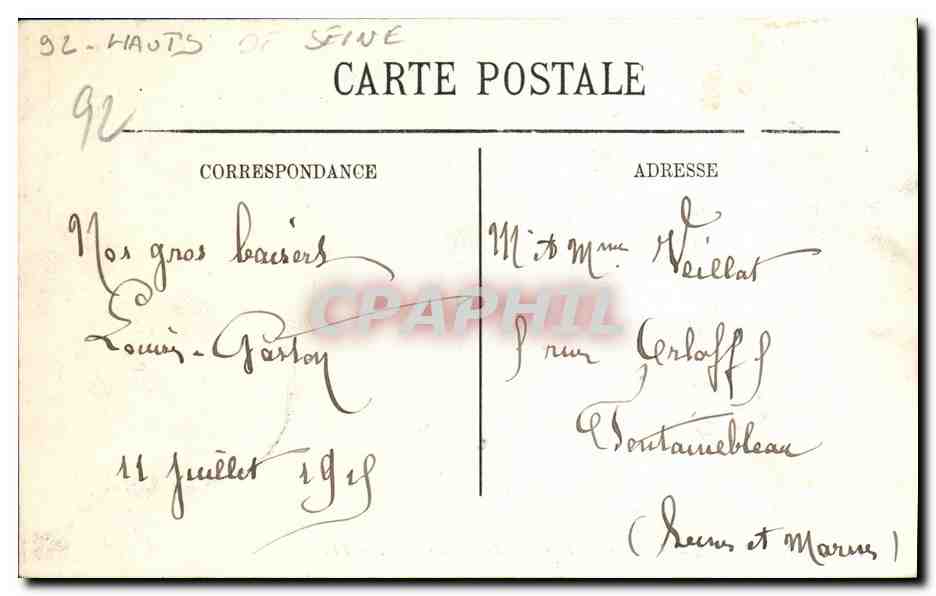 92 - HAUTS DE SEINE
92
CARTE POSTALE
CORRESPONDANCE
Nos gros baisers
Louis - Gaston
11 Juillet 1915
ADRESSE
Mr et Mme Veillat
5 rue Orloff 5
Fontainebleau
(Seine et Marne)
CPAPHIL